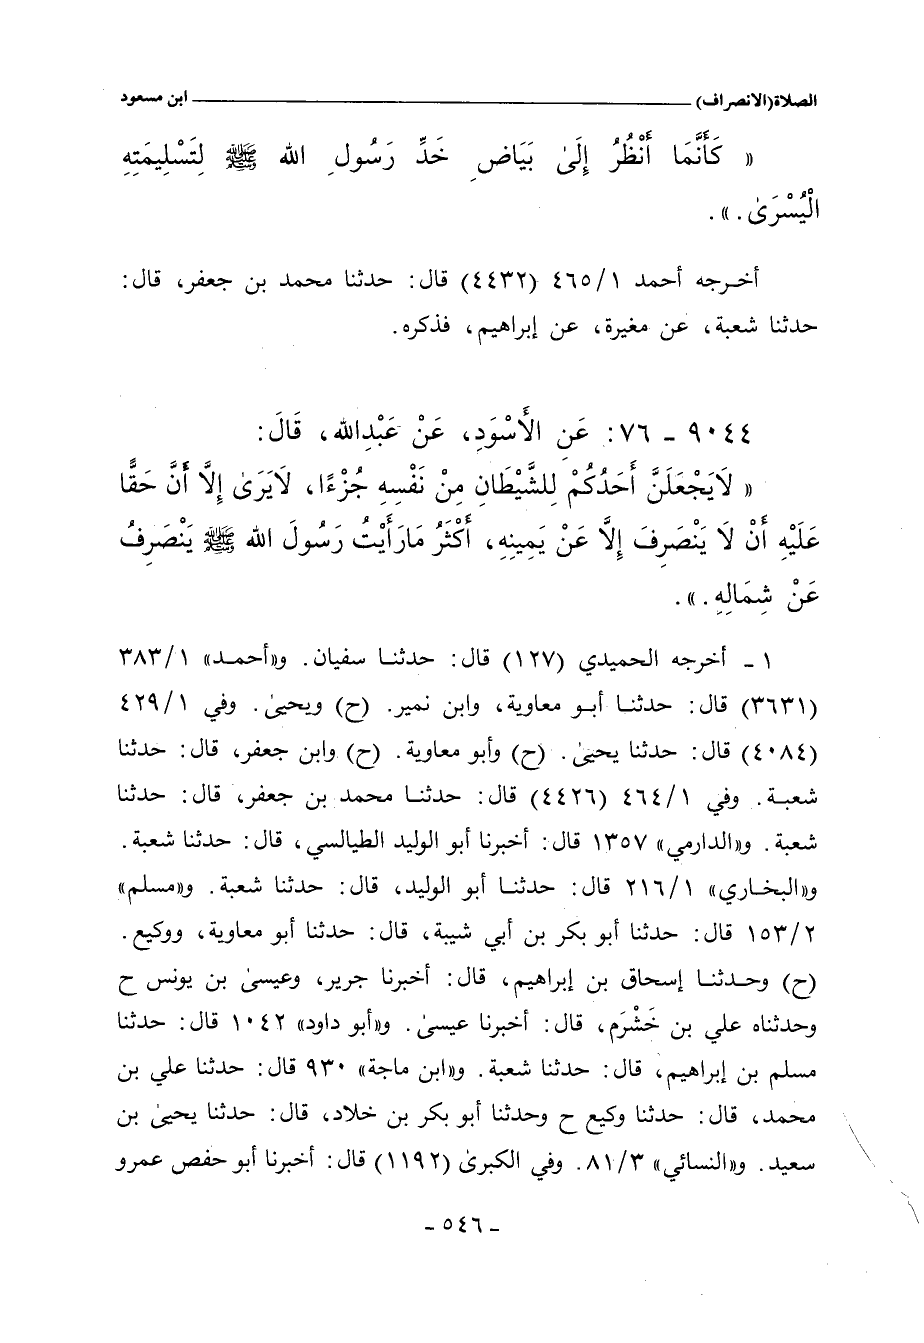 الصلاة(الانصراف) ــــــــــــــــــــــــ ابن مسعود
« كَأَنَّمَا أَنْظُرُ إِلَىٰ بَيَاضِ خَدِّ رَسُولِ الله ﷺ لِتَسْلِيمَتِهِ
الْيُسْرَىٰ . ».
أخرجه أحمد ٤٦٥/١ (٤٤٣٢) قال: حدثنا محمد بن جعفر، قال:
حدثنا شعبة، عن مغيرة، عن إبراهيم، فذكره.
٩٠٤٤ - ٧٦: عَنِ الأَسْوَدِ، عَنْ عَبْدِالله، قَالَ:
« لَايَجْعَلَنَّ أَحَدُكُمْ لِلشَّيْطَانِ مِنْ نَفْسِهِ جُزْءًا، لَايَرَىٰ إِلَّا أَنَّ حَقًّا
عَلَيْهِ أَنْ لَا يَنْصَرِفَ إِلَّا عَنْ يَمِينِهِ، أَكْثَرُ مَارَأَيْتُ رَسُولَ الله ﷺ يَنْصَرِفُ
عَنْ شِمَالِهِ . ».
١ - أخرجه الحميدي (١٢٧) قال: حدثنا سفيان. و«أحمد» ٣٨٣/١
(٣٦٣١) قال: حدثنا أبو معاوية، وابن نمير. (ح) ويحيىٰ. وفي ٤٢٩/١
(٤٠٨٤) قال: حدثنا يحيىٰ. (ح) وأبو معاوية. (ح) وابن جعفر، قال: حدثنا
شعبة. وفي ٤٦٤/١ (٤٤٢٦) قال: حدثنا محمد بن جعفر، قال: حدثنا
شعبة. و«الدارمي» ١٣٥٧ قال: أخبرنا أبو الوليد الطيالسي، قال: حدثنا شعبة.
و«البخاري» ٢١٦/١ قال: حدثنا أبو الوليد، قال: حدثنا شعبة. و«مسلم»
١٥٣/٢ قال: حدثنا أبو بكر بن أبي شيبة، قال: حدثنا أبو معاوية، ووكيع.
(ح) وحدثنا إسحاق بن إبراهيم، قال: أخبرنا جرير، وعيسىٰ بن يونس ح
وحدثناه علي بن خَشْرَم، قال: أخبرنا عيسىٰ. و«أبو داود» ١٠٤٢ قال: حدثنا
مسلم بن إبراهيم، قال: حدثنا شعبة. و«ابن ماجة» ٩٣٠ قال: حدثنا علي بن
محمد، قال: حدثنا وكيع ح وحدثنا أبو بكر بن خلاد، قال: حدثنا يحيىٰ بن
سعيد. و«النسائي» ٨١/٣. وفي الكبرىٰ (١١٩٢) قال: أخبرنا أبو حفص عمرو
- ٥٤٦ -